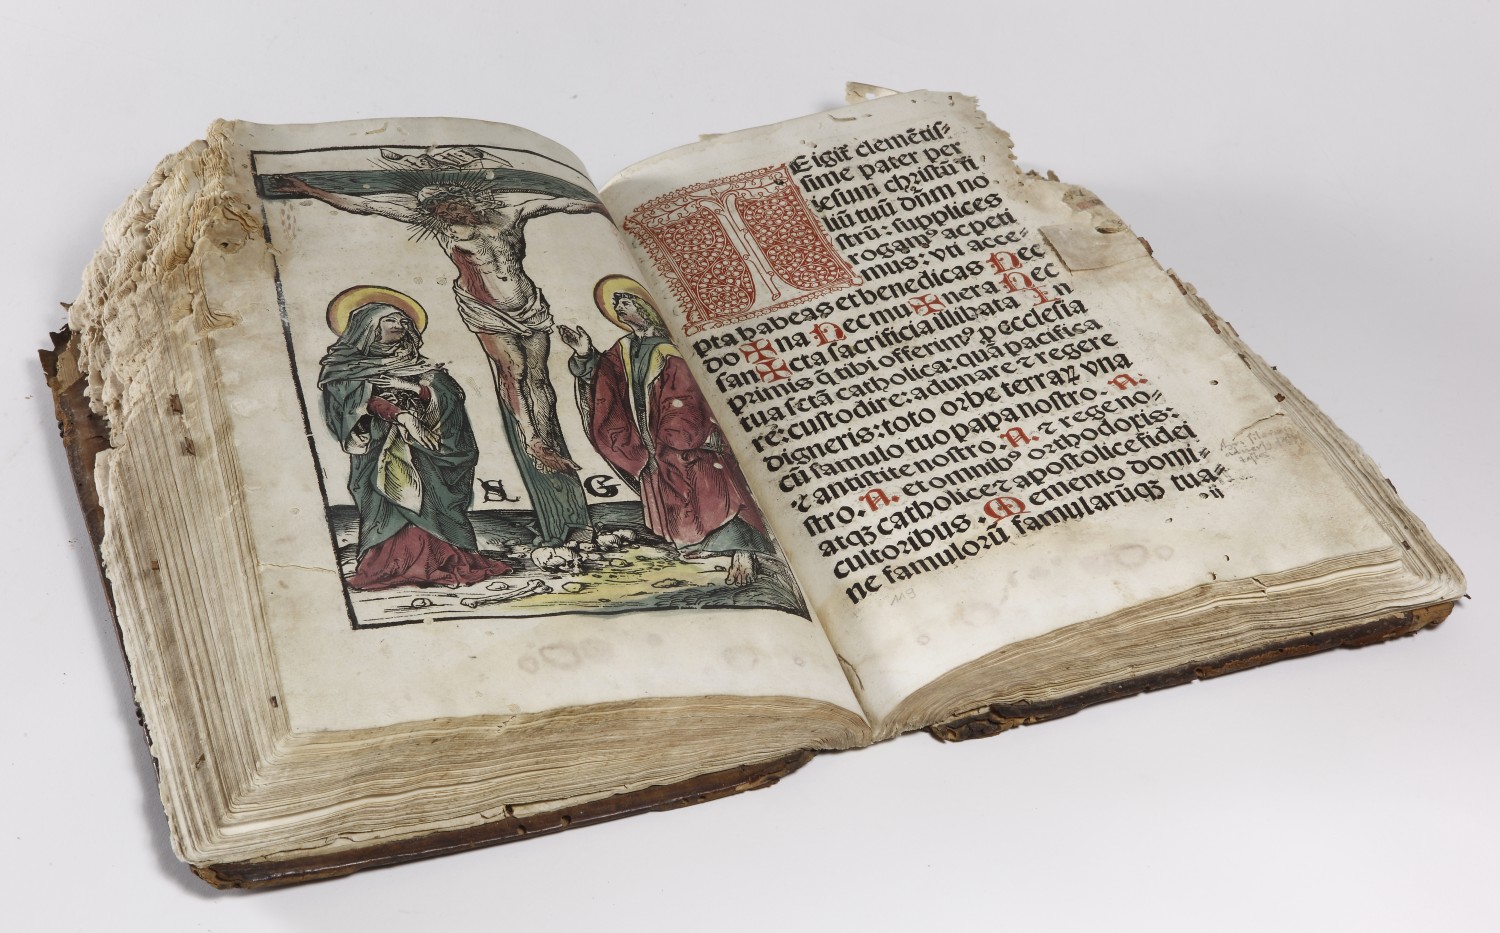 L G
TEigit᷑ clemẽtis⸗
sime pater per
iesum christũ fi
liũ tuũ dñm no
strũ: supplices
rogamꝰ ac peti
mus: vti acce⸗
pta habeas et benedicas Hec
do ✠ na Hec mu ✠ nera Hec
san ✠ cta sacrificia illibata In
primis q̃ tibi offerimꝰ p ecclesia
tua sctã catholica: quã pacifica
re: custodire: adunare ⁊ regere
digneris: toto orbe terraꝝ vna
cũ famulo tuo papa nostro. A.
⁊ antistite nostro. A. ⁊ rege no⸗
stro. A. et omnibꝰ orthodoxis:
atqꝫ catholice ⁊ apostolice fidei
cultoribus. Memento domi⸗
ne famulorũ famularũqꝫ tua⸗
ij
119